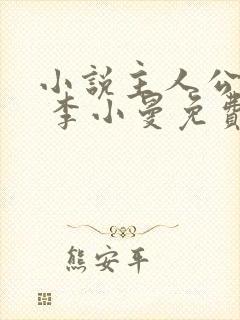 小說主人公
李小曼免費
熊安平